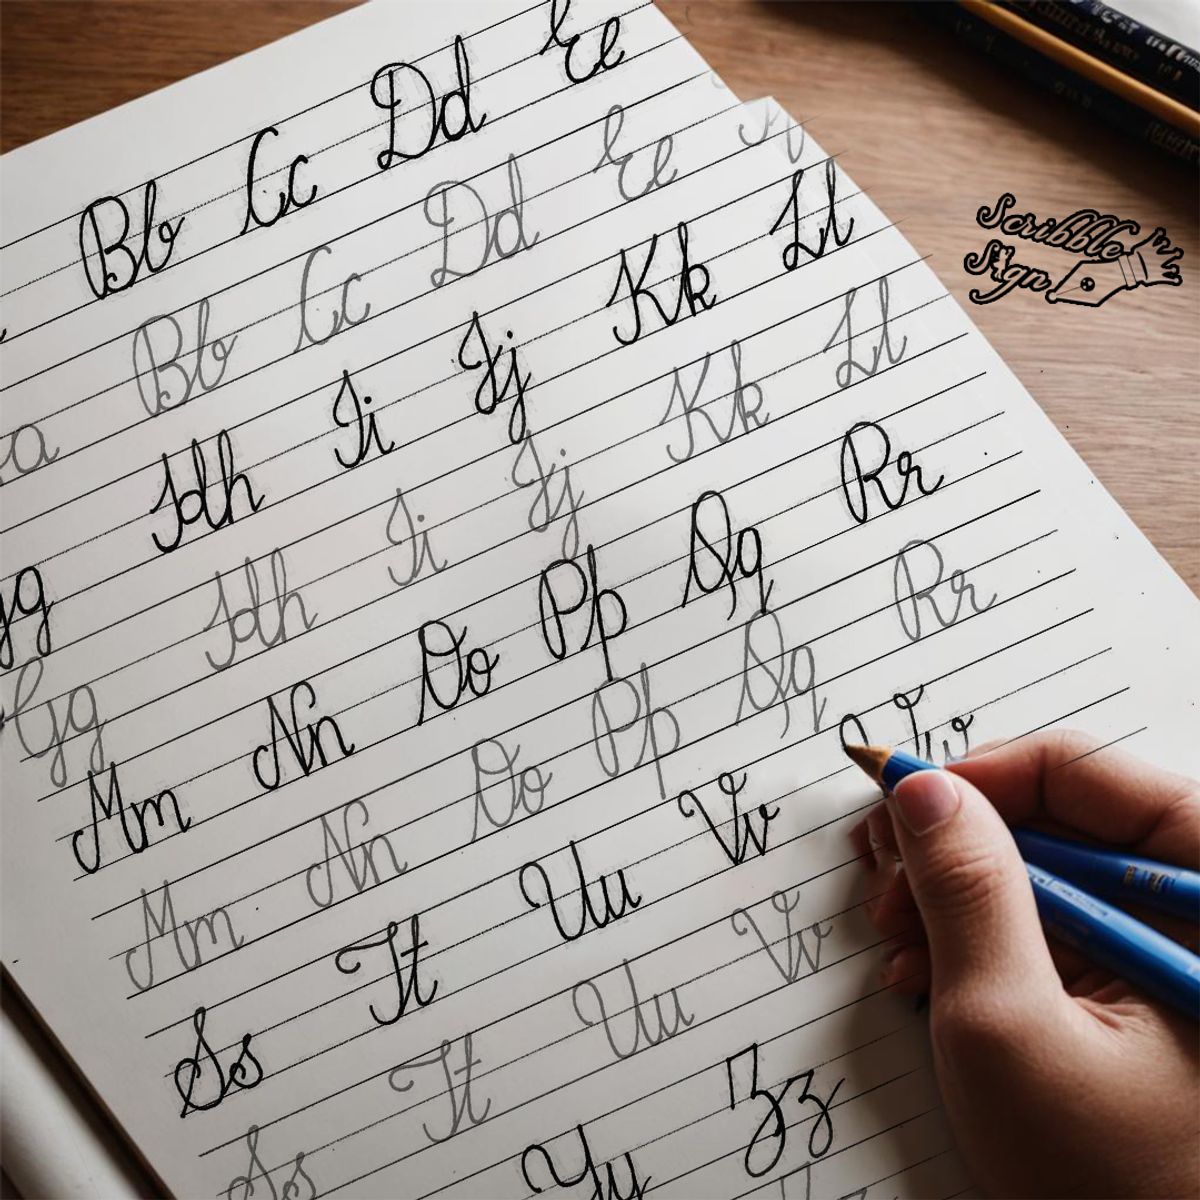 Bb Cc Dd Ee
Bb Cc Dd Ee
Hh Ii Jj Kk Ll
Gg Hh Ii Jj Kk Ll
Mm Nn Oo Pp Qq Rr
Mm Nn Oo Pp Qq Rr
Ss Tt Uu Vv
Ss Tt Uu Vv
Yy Zz
Scribble
Sign